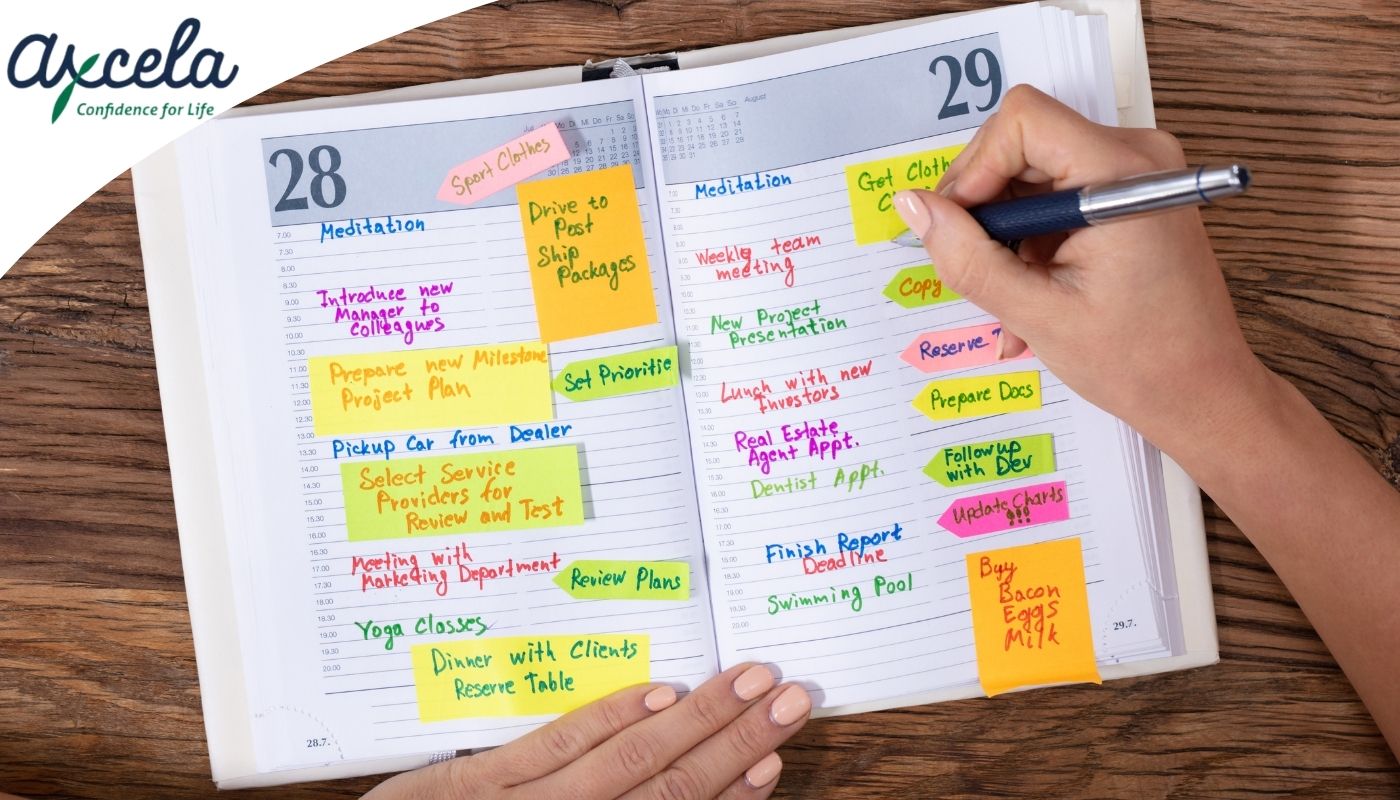 axcela
Confidence for Life
28
Sport Clothes
Meditation
Drive to
Post
Ship
Packages
Introduce new
Manager to
Colleagues
Prepare new Milestone
Project Plan
Set Prioritie
Pickup Car from Dealer
Select Service
Providers for
Review and Test
Meeting with
Marketing Department
Review Plans
Yoga Classes
Dinner with Clients
Reserve Table
7.00
7.30
8.00
9.00
9.30
10.00
10.30
11.00
11.30
12.00
12.30
13.00
14.00
14.30
15.00
15.30
16.00
16.30
17.00
17.30
18.00
19.00
19.30
20.00
28.7.
29
August
Meditation
Get Cloth
Weekly team
meeting
Copy
New Project
Presentation
Reserve
Lunch with new
Investors
Prepare Docs
Real Estate
Agent Appt.
Followup
with Dev
Dentist Appt.
Update Charts
!!!
Finish Report
Deadline
Swimming Pool
Buy
Bacon
Eggs
Milk
20.00
29.7.